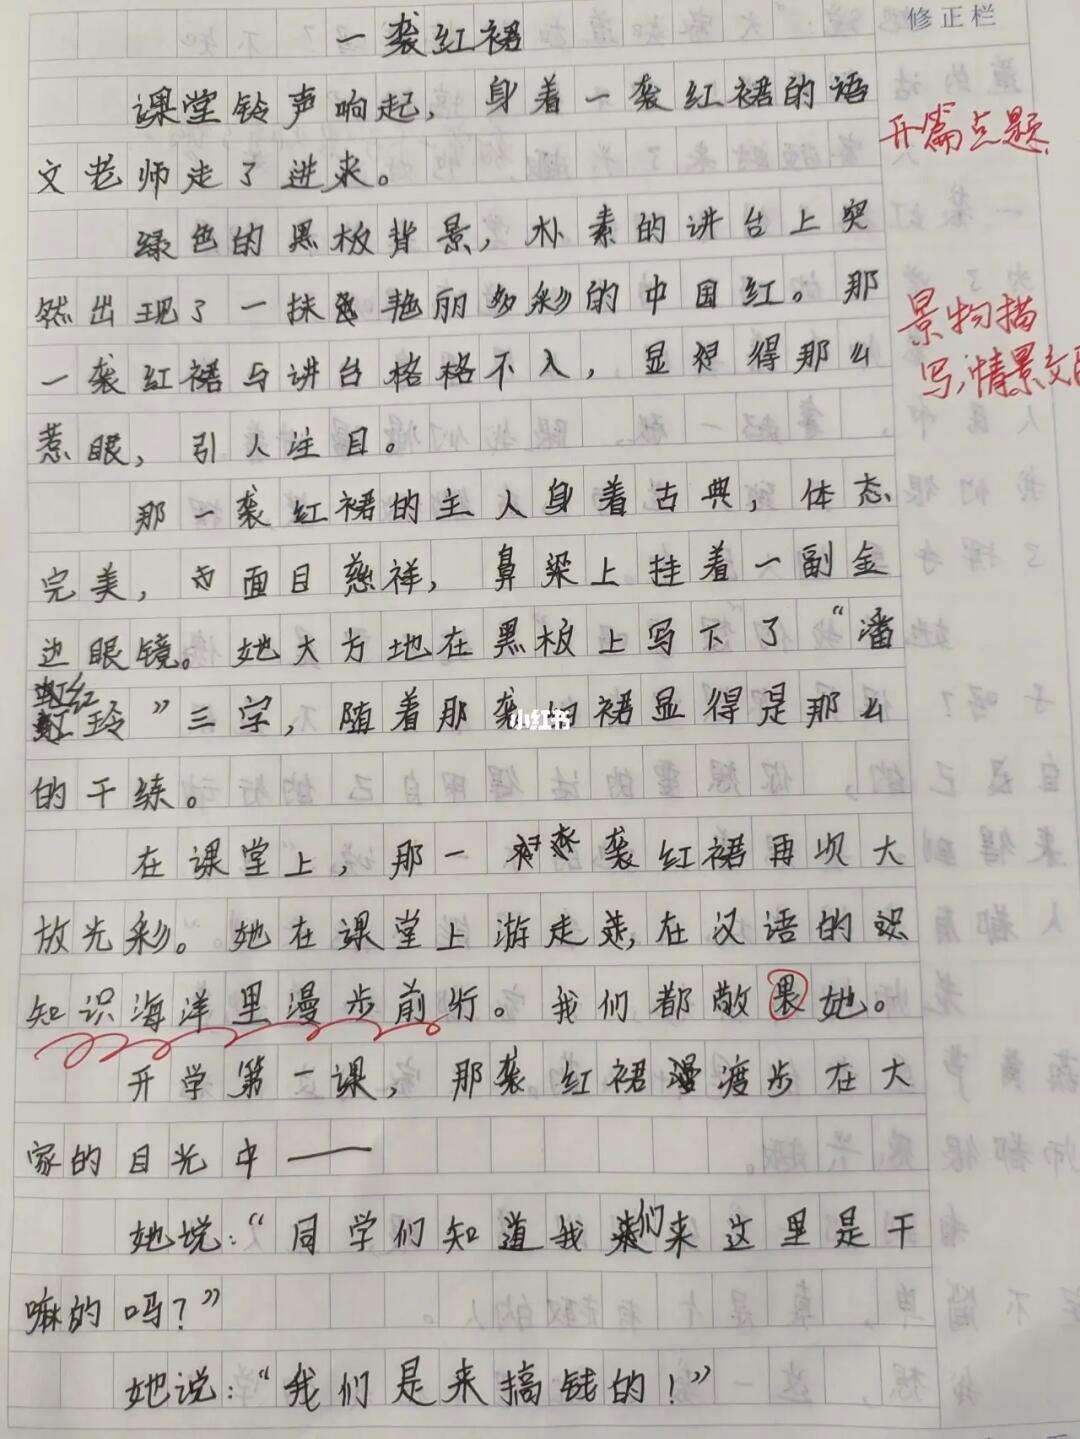 修正栏
一袭红裙
课堂铃声响起，身着一袭红裙的语
开篇点题
文老师走了进来。
绿色的黑板背景，朴素的讲台上突
然出现了一抹艳丽多彩的中国红。那
景物描
一袭红裙与讲台格格不入，显得那么
写，情景交
惹眼，引人注目。
那一袭红裙的主人身着古典，体态
完美，面目慈祥，鼻梁上挂着一副金
边眼镜。她大方地在黑板上写下了“潘
虹玲”三字，随着那袭红裙显得是那么
小红书
的干练。
在课堂上，那一袭红裙再次大
放光彩。她在课堂上游走，在汉语的
知识海洋里漫步前行。我们都敬畏她。
开学第一课，那袭红裙漫渡步在大
家的目光中——
她说：“同学们知道我们来这里是干
嘛的吗？”
她说：“我们是来搞钱的！”